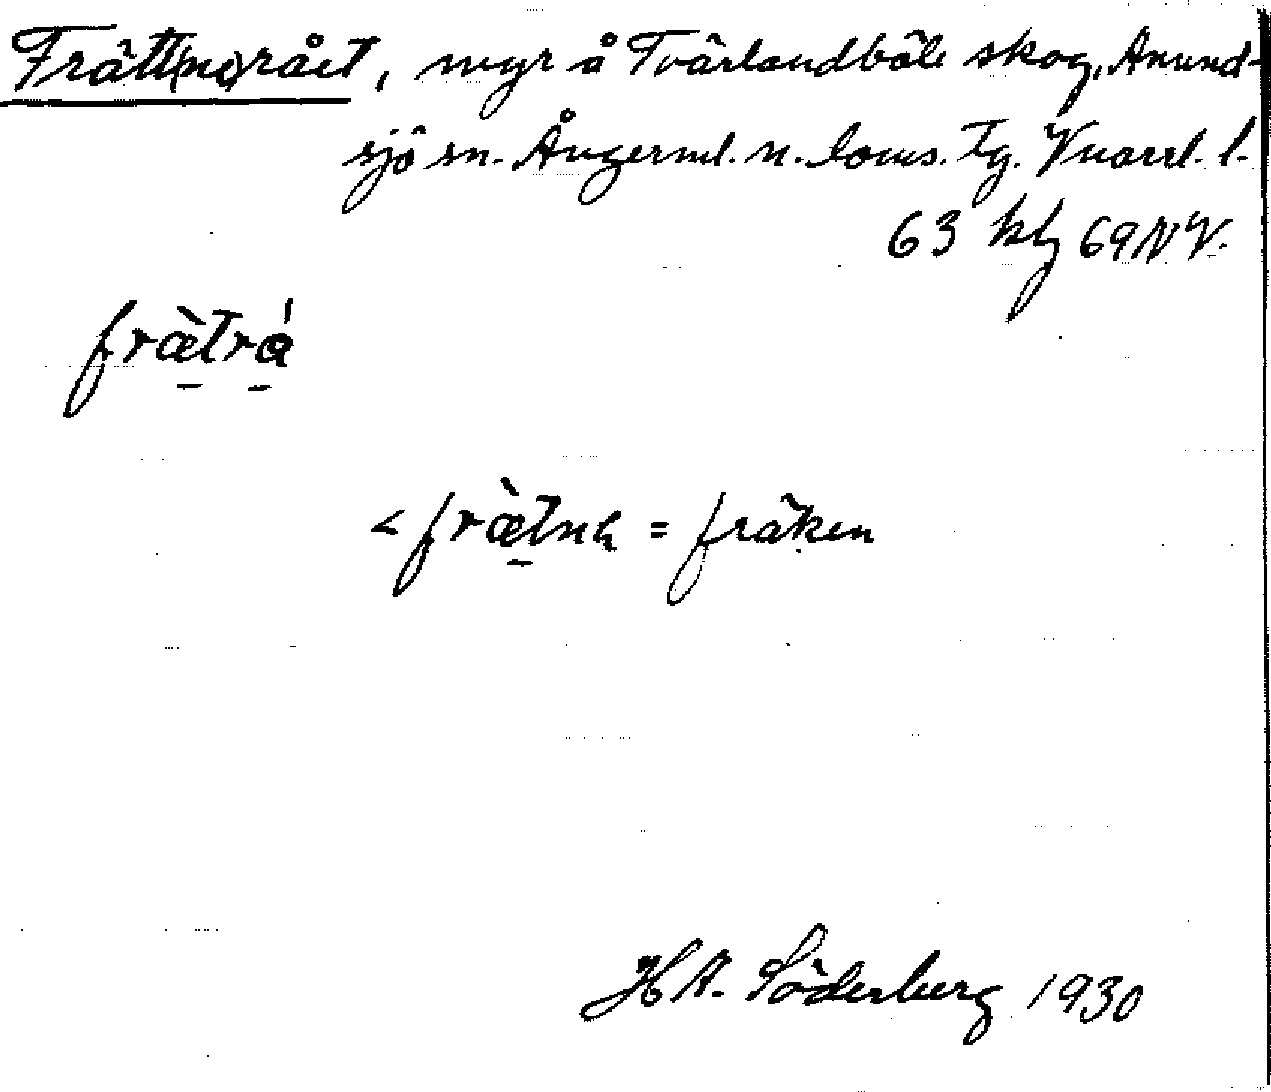 Frätt(no)rået, myr å Tvärlandböle skog, Anund-
sjö sn. Ångerml. n. doms. Tg.
63 kbl 69 NV.
frætrá
< frætn = fräken
H A. Söderberg 1930